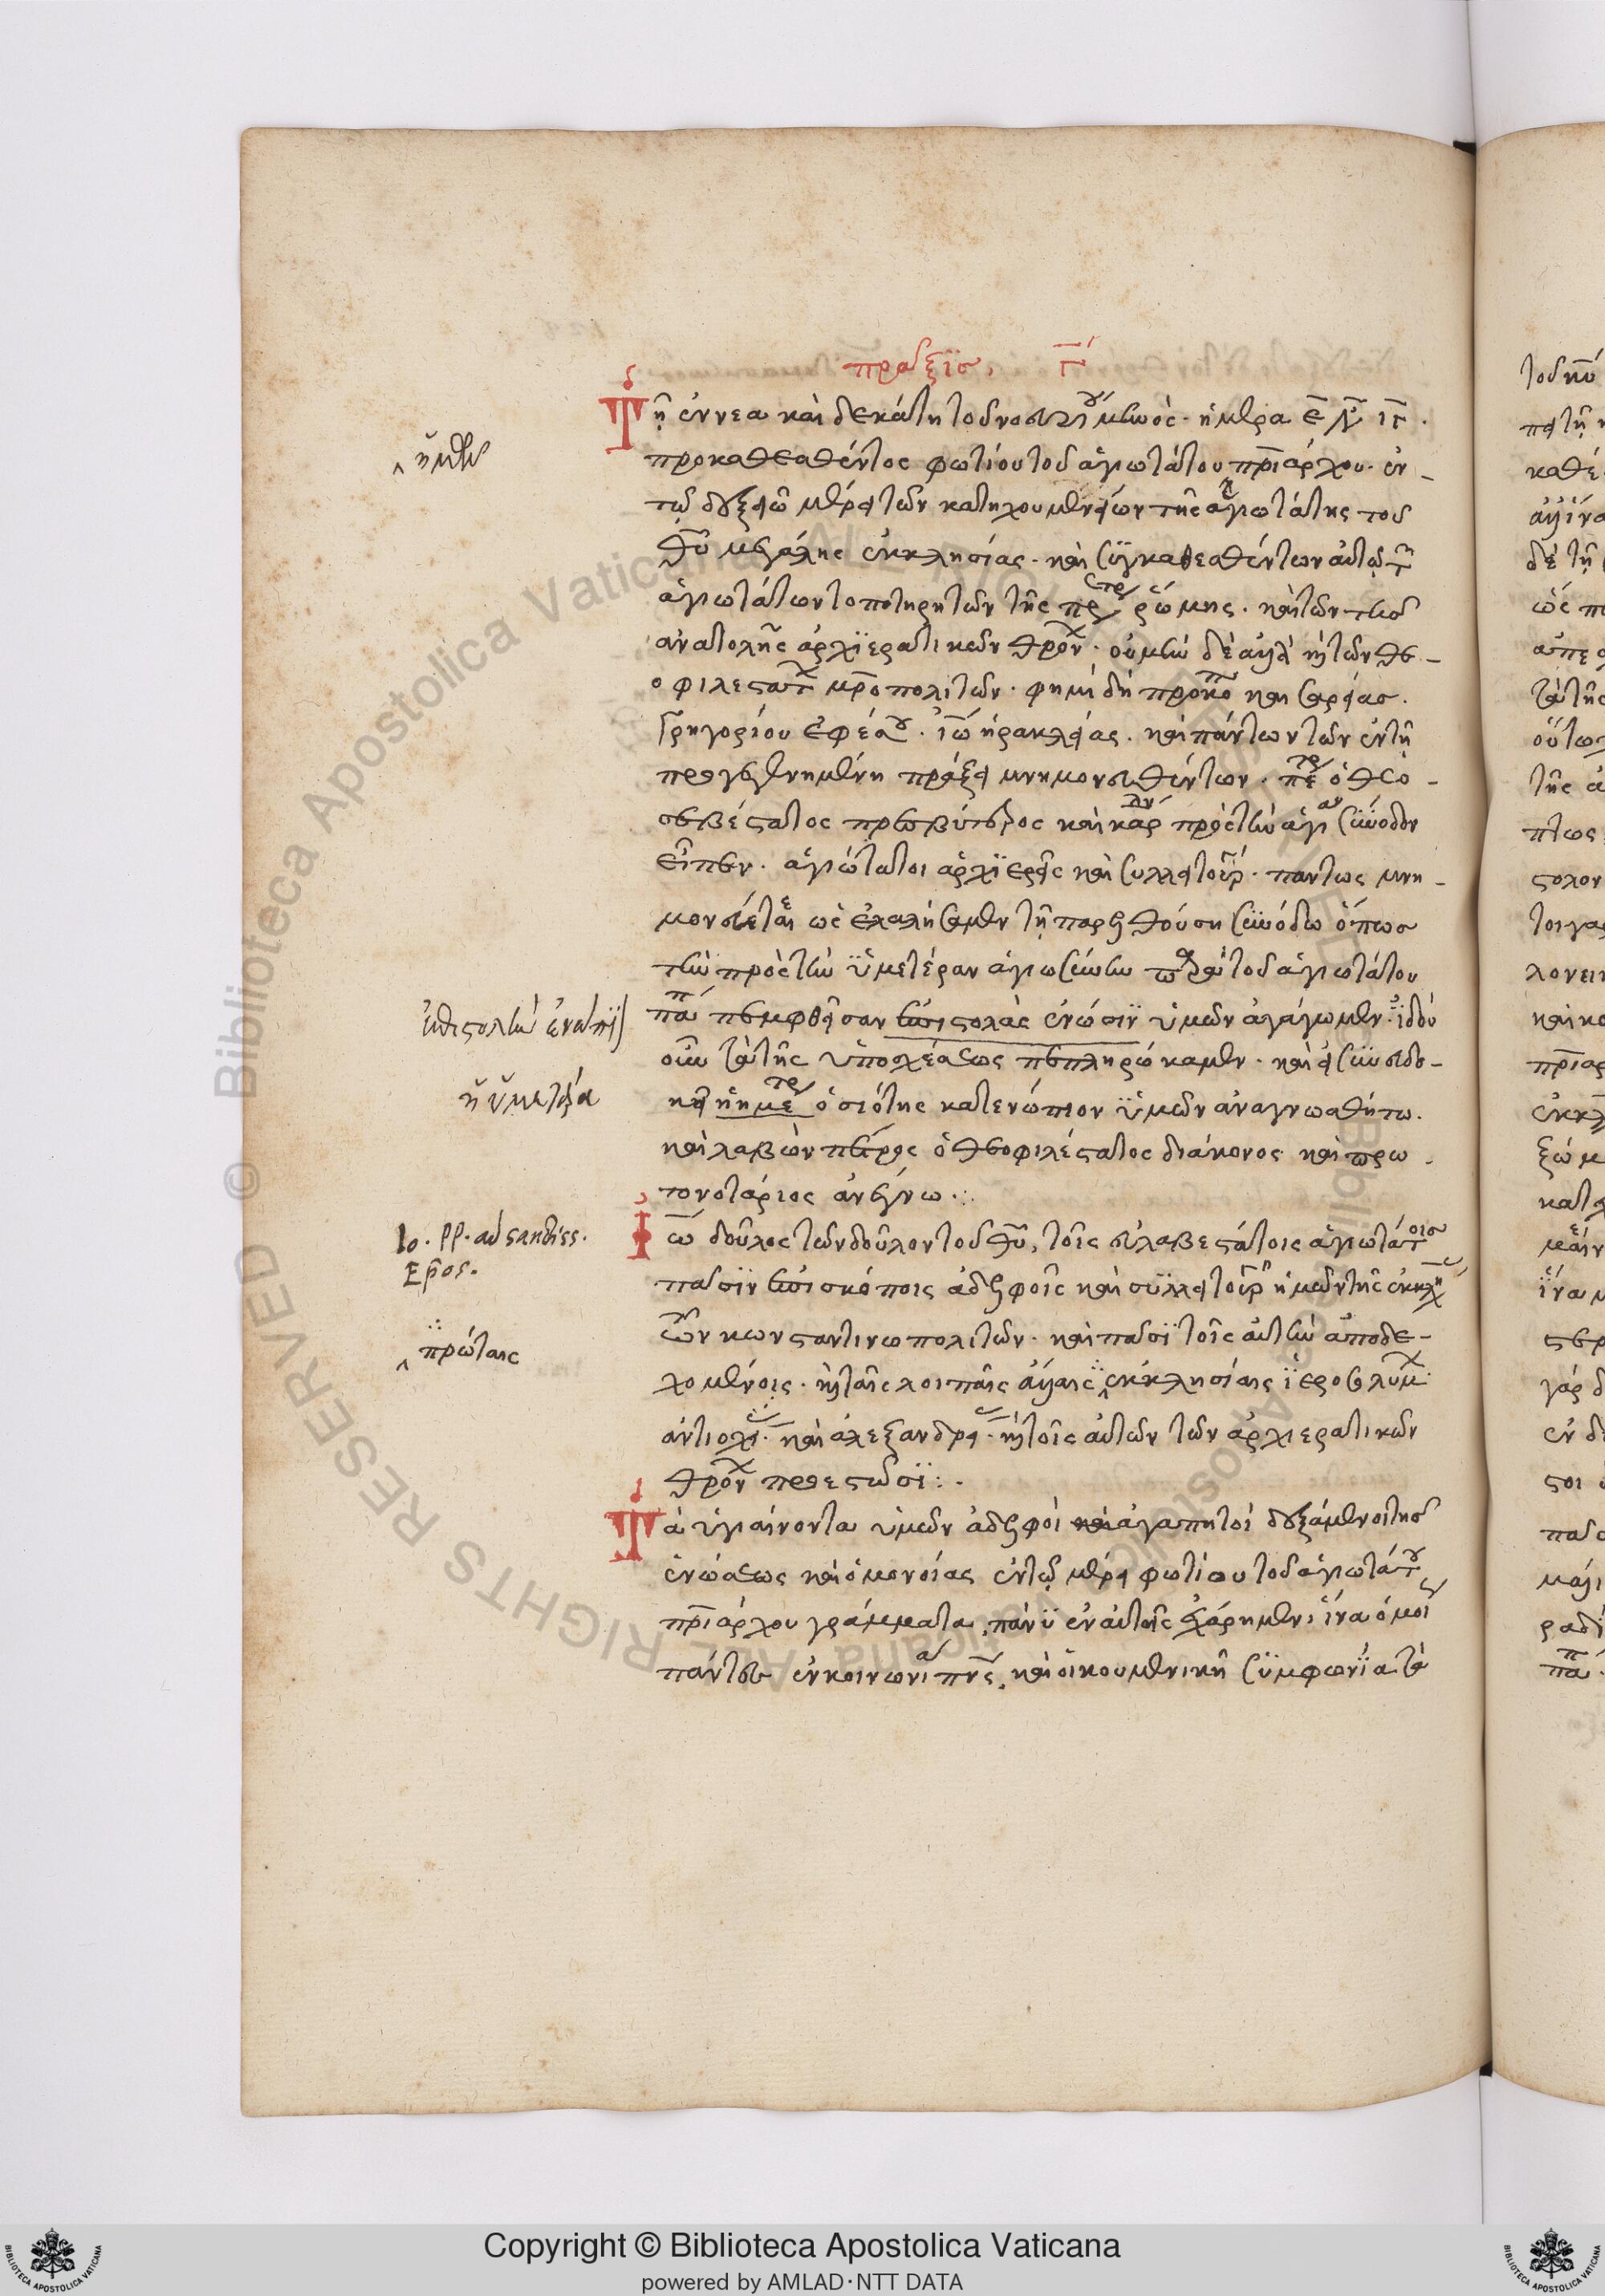 πρᾶξϊσ, Γ´
Τῆ ἐννεα καὶ δεκάτη τοῦ νοευρίου μηνὸς· ἡμέρα ε̄ ἰν ῑγ̄·
προκαθεσθέντος φωτίου τοῦ ἁγιωτάτου πριάρχου· ἐν
τῷ δεξιῶ μέρει τῶν κατηχουμενείων τῆς ἁγιωτάτης τοῦ
θυ μεγάλης ἐκκλησίας· καὶ συγκαθεσθέντων αὐτῷ τ
ἁγιωτάτων τοποτηρητῶν τῆς πρεσ ῥώμης· καὶ τῶν τῆσ
ἀνατολῆς ἀρχϊερατικῶν θρόν· οὐ μὴν δὲ ἀλλὰ κὶ τῶν θε
οφιλεστατ μροπολιτῶν· φημὶ δὴ προκο καισαρείασ·
Γρηγορίου ἐφέσου· ἰω ἡρακλείας· καὶ πάντων τῶν ἐν τῆ
προγεγενημένη πράξει μνημονευθέντων· πέτρ ὁ θεο
σεβέστατος πρεσβύτερος καὶ καρ πρὸς τὴν ἁγι σύνοδον
εἶπεν· ἁγιώτατοι ἀρχϊερεῖς καὶ συλλειτουρ· παντως μνη
μονεύεται ὡς ἐλαλήσαμεν τῆ παρελθούση συνόδω ὅπωσ
τὴν πρὸς τὴν ὑμετέραν ἁγιωσύνην παρὰ τοῦ ἁγιωτάτου
πάπ πεμφθεῖσαν ἐπιστολὰς ἑνώσιν ὑμῶν ἀγάγωμεν· ἰδοὺ
οὖν ταύτης ὑποσχέσεως πεπληρώκαμεν· καὶ εἰ συνευδο
κεῖ ἡ ἡμετρ ὁσιότης κατενώπιον ὑμῶν ἀναγνωσθήτω.
καὶ λαβὼν πέτρος ὁ θεοφιλέστατος διάκονος καὶ πρω
τονοτάριος ἀνέγνω·:·
Ἰω δοῦλος τῶν δούλον τοῦ θυ, τοῖς εὐλαβεστάτοις ἁγιωτάτοισ
πᾶσιν ἐπισκόποις ἀδελφοῖς καὶ συλλειτουρ ἡμῶν τῆς ἐκκλη
ῶν κωνσταντινωπολιτῶν· καὶ πᾶσϊ τοῖς αὐτὴν ἀποδε
χομένοις· κὶ ταῖς λοιπαῖς ἁγίαις ἐκκλησίαις ἱεροσολύμ
ἀντιοχεί· καὶ ἀλεξανδρεί· κὶ τοῖς αὐτῶν τῶν ἀρχιερατικῶν
θρόν προεστῶσϊ:·
Τὰ ὑγιαίνοντα ὑμῶν ἀδελφοὶ ἀγαπητοὶ δεξάμενοι τῆσ
ἑνώσεως καὶ ὁμονοίας ἐν τῷ μέρει φωτίου τοῦ ἁγιωτάτου
πριάρχου γράμματα, πάνυ ἐν αὐτοῖς ἐχάρημεν, ἵνα ὁμοῦ
πάντες ἐν κοινωνία πνς, καὶ οἰκουμενικῆ συμφωνία τὰ
ἐπιστολὴν
ἢ ὑμετέρα
Io. PP. ad sanctiss.
Epos.
πρώταις